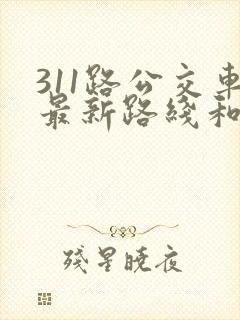 311路公交車
最新路綫和
殘星曉夜